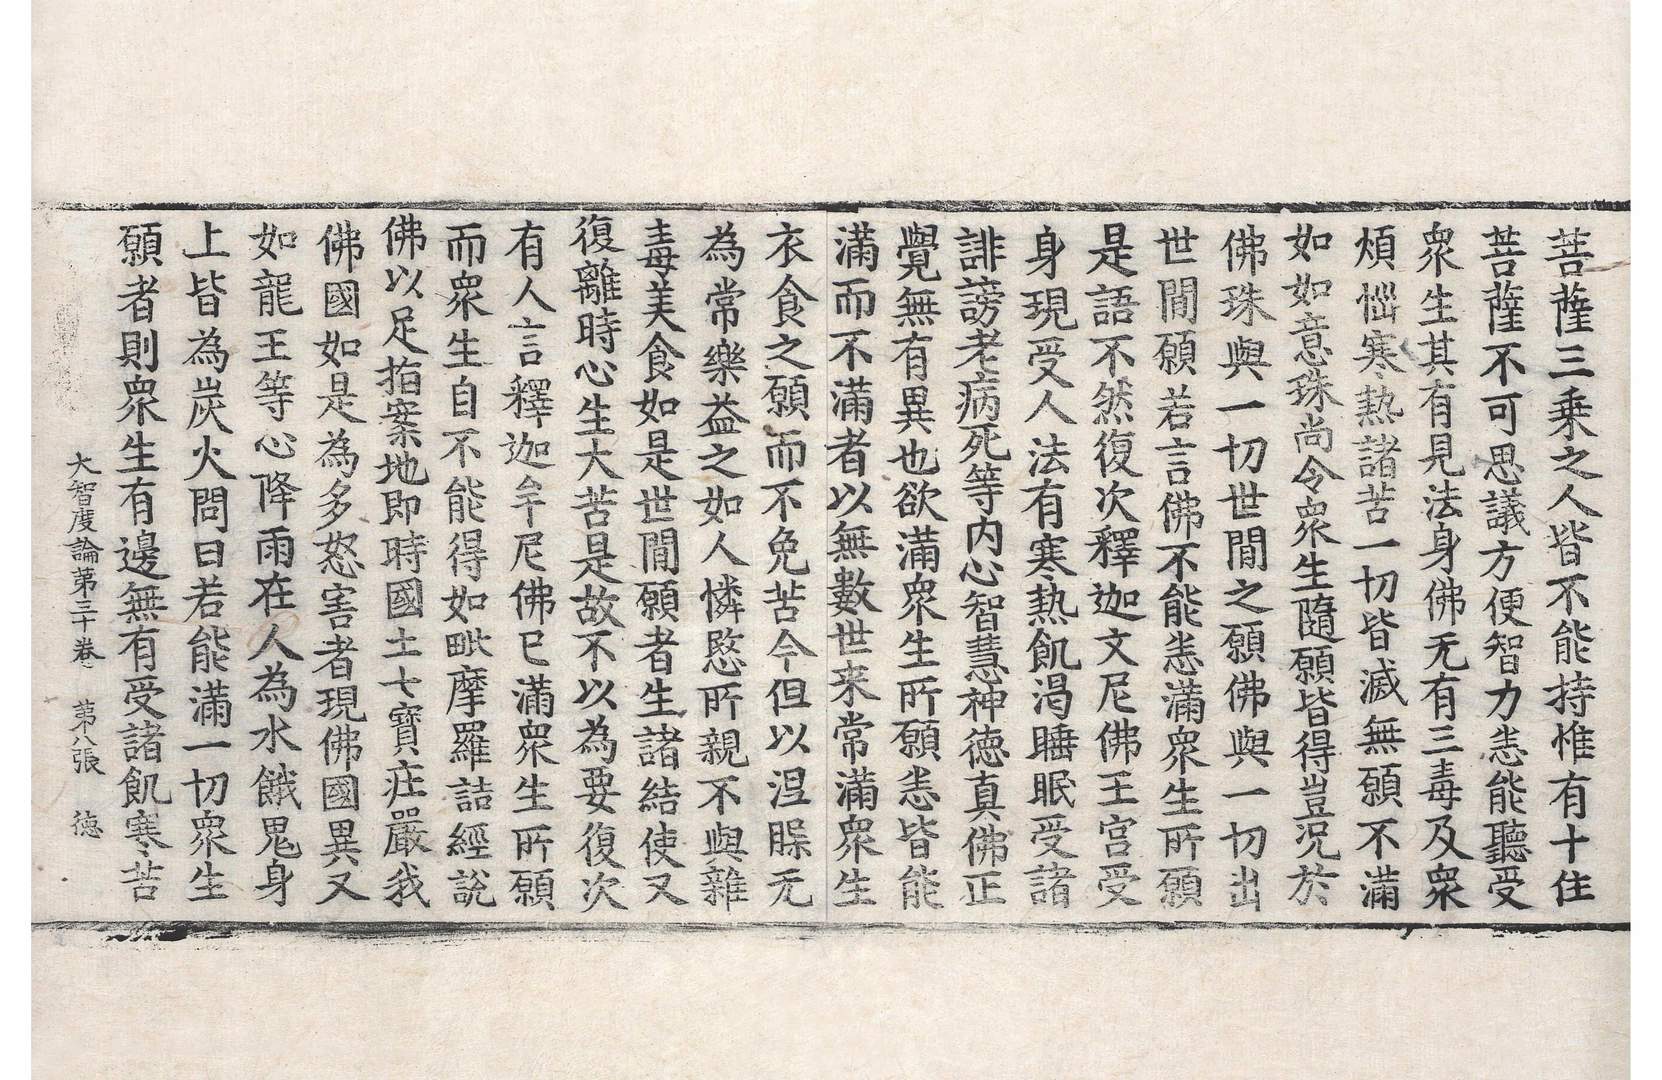 菩薩三乗之人皆不能持惟有十住
菩薩不可思議方便智力恙能聽受
衆生其有見法身佛无有三毒及衆
煩惱寒熱諸苦一切皆滅無願不滿
如如意珠尚令衆生隨願皆得豈況於
佛珠與一切世間之願佛與一切出
世間願若言佛不能恙滿衆生所願
是語不然復次釋迦文尼佛王宮受
身現受人法有寒熱飢渇睡眠受諸
誹謗老病死等内心智慧神徳真佛正
覺無有異也欲滿衆生所願恙皆能
滿而不滿者以無數世来常滿衆生
衣食之願而不免苦今但以涅槃无
為常樂益之如人憐愍所親不與雜
毒美食如是世間願者生諸結使又
復離時心生大苦是故不以為要復次
有人言釋迦牟尼佛已滿衆生所願
而衆生自不能得如毗摩羅詰經説
佛以足指案地即時國土七寶莊嚴我
佛國如是為多怒害者現佛國異又
如龍王等心降雨在人為水餓鬼身
上皆為炭火問曰若能滿一切衆生
願者則衆生有邊無有受諸飢寒苦
大智度論第三十卷 第八張 徳